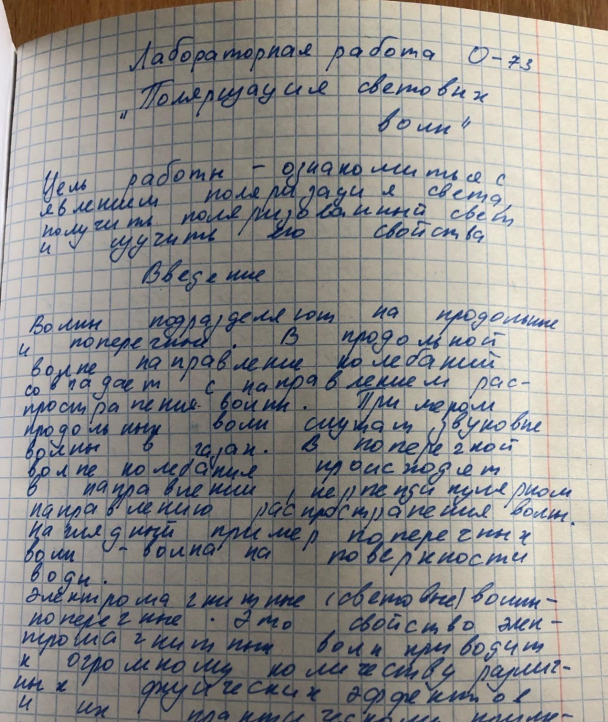 Лабораторная работа О-73
"Поляризация световых
волн"
Цель работы - ознакомиться с
явлением поляризации света,
получить поляризованный свет
и изучить его свойства
Введение
Волны подразделяют на продольные
и поперечные. В продольной
волне направление колебаний
совпадает с направлением рас-
пространения волны. Примером
продольных волн служат звуковые
волны в газах. В поперечной
волне колебания происходят
в направлении, перпендикулярном
направлению распространения волны.
Наглядный пример поперечных
волн - волна на поверхности
воды.
Электромагнитные (световые) волны-
поперечные. Это свойство элек-
тромагнитных волн приводит
к огромному количеству различ-
ных физических эффектов
и их практическому